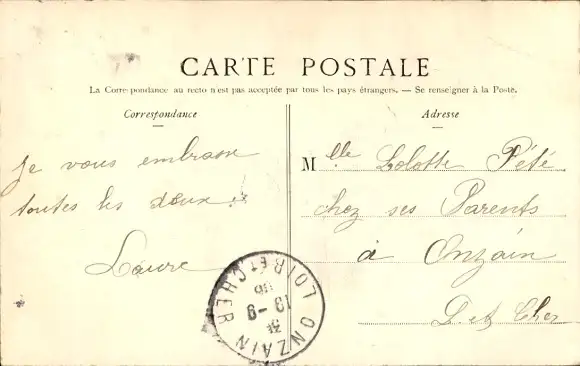 CARTE POSTALE
La Correspondance au recto n'est pas acceptée par tous les pays étrangers. — Se renseigner à la Poste.
Correspondance
Je vous embrasse
toutes les deux !!
Laure
Adresse
Mlle Lolotte Pété
chez ses Parents
à Onzain
L et Cher
ONZAIN
LOIR ET CHER
19 - 9
06